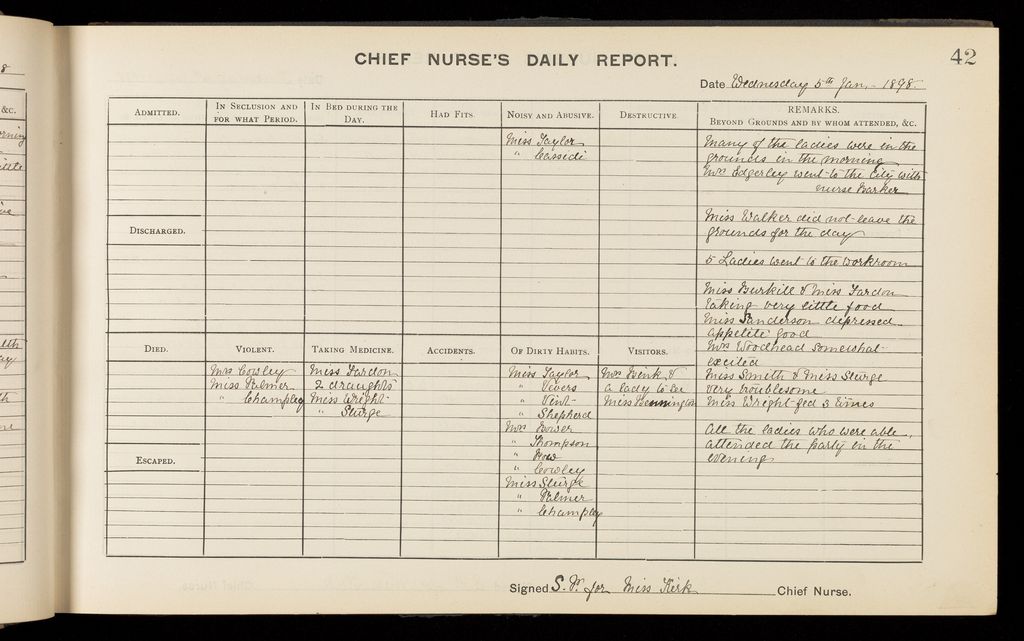 CHIEF NURSE'S DAILY REPORT.
42
Date Wednesday 5th Jan. 1898.
ADMITTED.
IN SECLUSION AND FOR WHAT PERIOD.
IN BED DURING THE DAY.
HAD FITS.
NOISY AND ABUSIVE.
DESTRUCTIVE.
REMARKS.
BEYOND GROUNDS AND BY WHOM ATTENDED, &C.
Miss Taylor
" Cassedi
Many of the ladies were in the
grounds in the morning
Mrs Edgerley went to the City with
nurse Barker
Miss Walker did not leave the
grounds for the day
5 Ladies went to the workroom
Miss Burkill & Miss Fardon
taking very little food
Miss Sanderson depressed
appetite good
Mrs Woodhead somewhat
excited
Miss Smith & Miss Sturge
very troublesome
Miss Wright fed 3 times
All the ladies who were able
attended the party in the
evening
DISCHARGED.
DIED.
VIOLENT.
TAKING MEDICINE.
ACCIDENTS.
OF DIRTY HABITS.
VISITORS.
Mrs Cowley
Miss Palmer
" Champley
Miss Fardon
2 draughts
Miss Wright
" Sturge
Miss Taylor
" Vevers
" Vint
" Shepherd
Mrs Bower
" Thompson
" How
" Cowley
Miss Sturge
" Palmer
" Champley
a lady to see
Miss Bennington
ESCAPED.
Signed S. for Miss Kirk Chief Nurse.